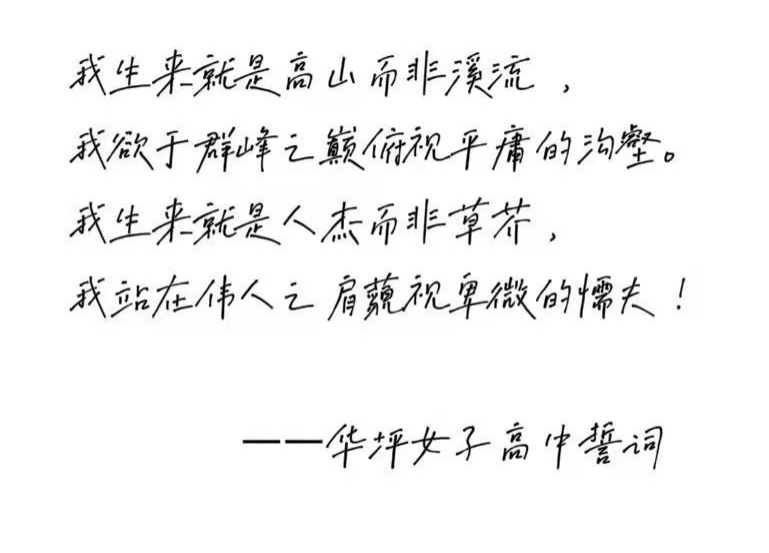 我生来就是高山而非溪流，
我欲于群峰之巅俯视平庸的沟壑。
我生来就是人杰而非草芥，
我站在伟人之肩藐视卑微的懦夫！
——华坪女子高中誓词